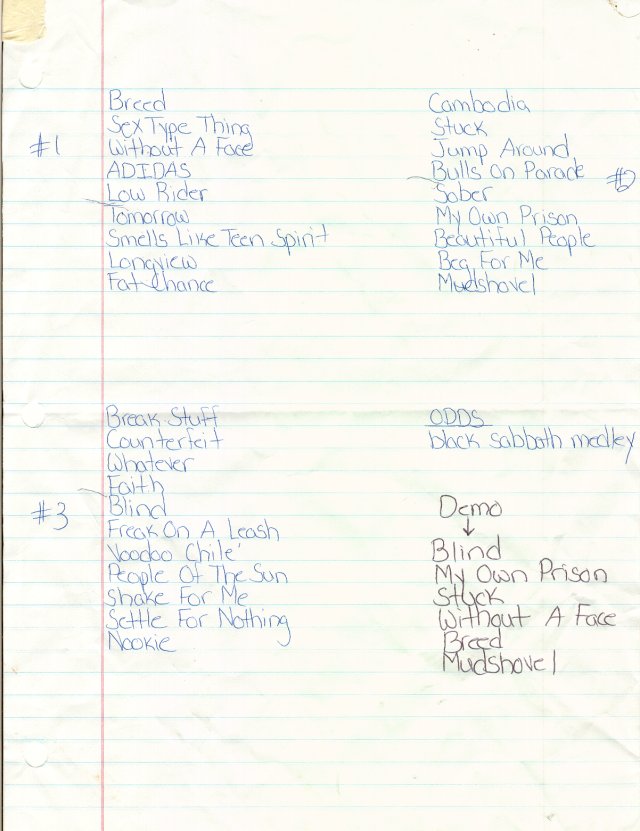 #1
Breed
Sex Type Thing
Without A Face
ADIDAS
Low Rider
Tomorrow
Smells Like Teen Spirit
Longview
Fat Chance
#2
Cambodia
Stuck
Jump Around
Bulls On Parade
Sober
My Own Prison
Beautiful People
Beg For Me
Mudshovel
#3
Break Stuff
Counterfeit
Whatever
Faith
Blind
Freak On A Leash
Voodoo Chile'
People Of The Sun
Shake For Me
Settle For Nothing
Nookie
ODDS
black sabbath medley
Demo
↓
Blind
My Own Prison
Stuck
Without A Face
Breed
Mudshovel